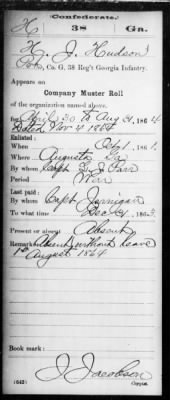 (Confederate.)
H 38 Ga.
H. J. Hudson
Pvt, Co. G, 38 Reg't Georgia Infantry.
Appears on
Company Muster Roll
of the organization named above,
for April 30 to Aug 31, 1864
Dated Nov 4 1864
Enlisted:
When Oct 1, 1861.
Where Augusta Ga
By whom Capt
Period War
Last paid:
By whom Capt Jernigan
To what time Dec 31, 1863.
Present or absent Absent
Remarks: Absent without leave
1st August 1864
Book mark:
J. Jacobson
(642) Copyist.